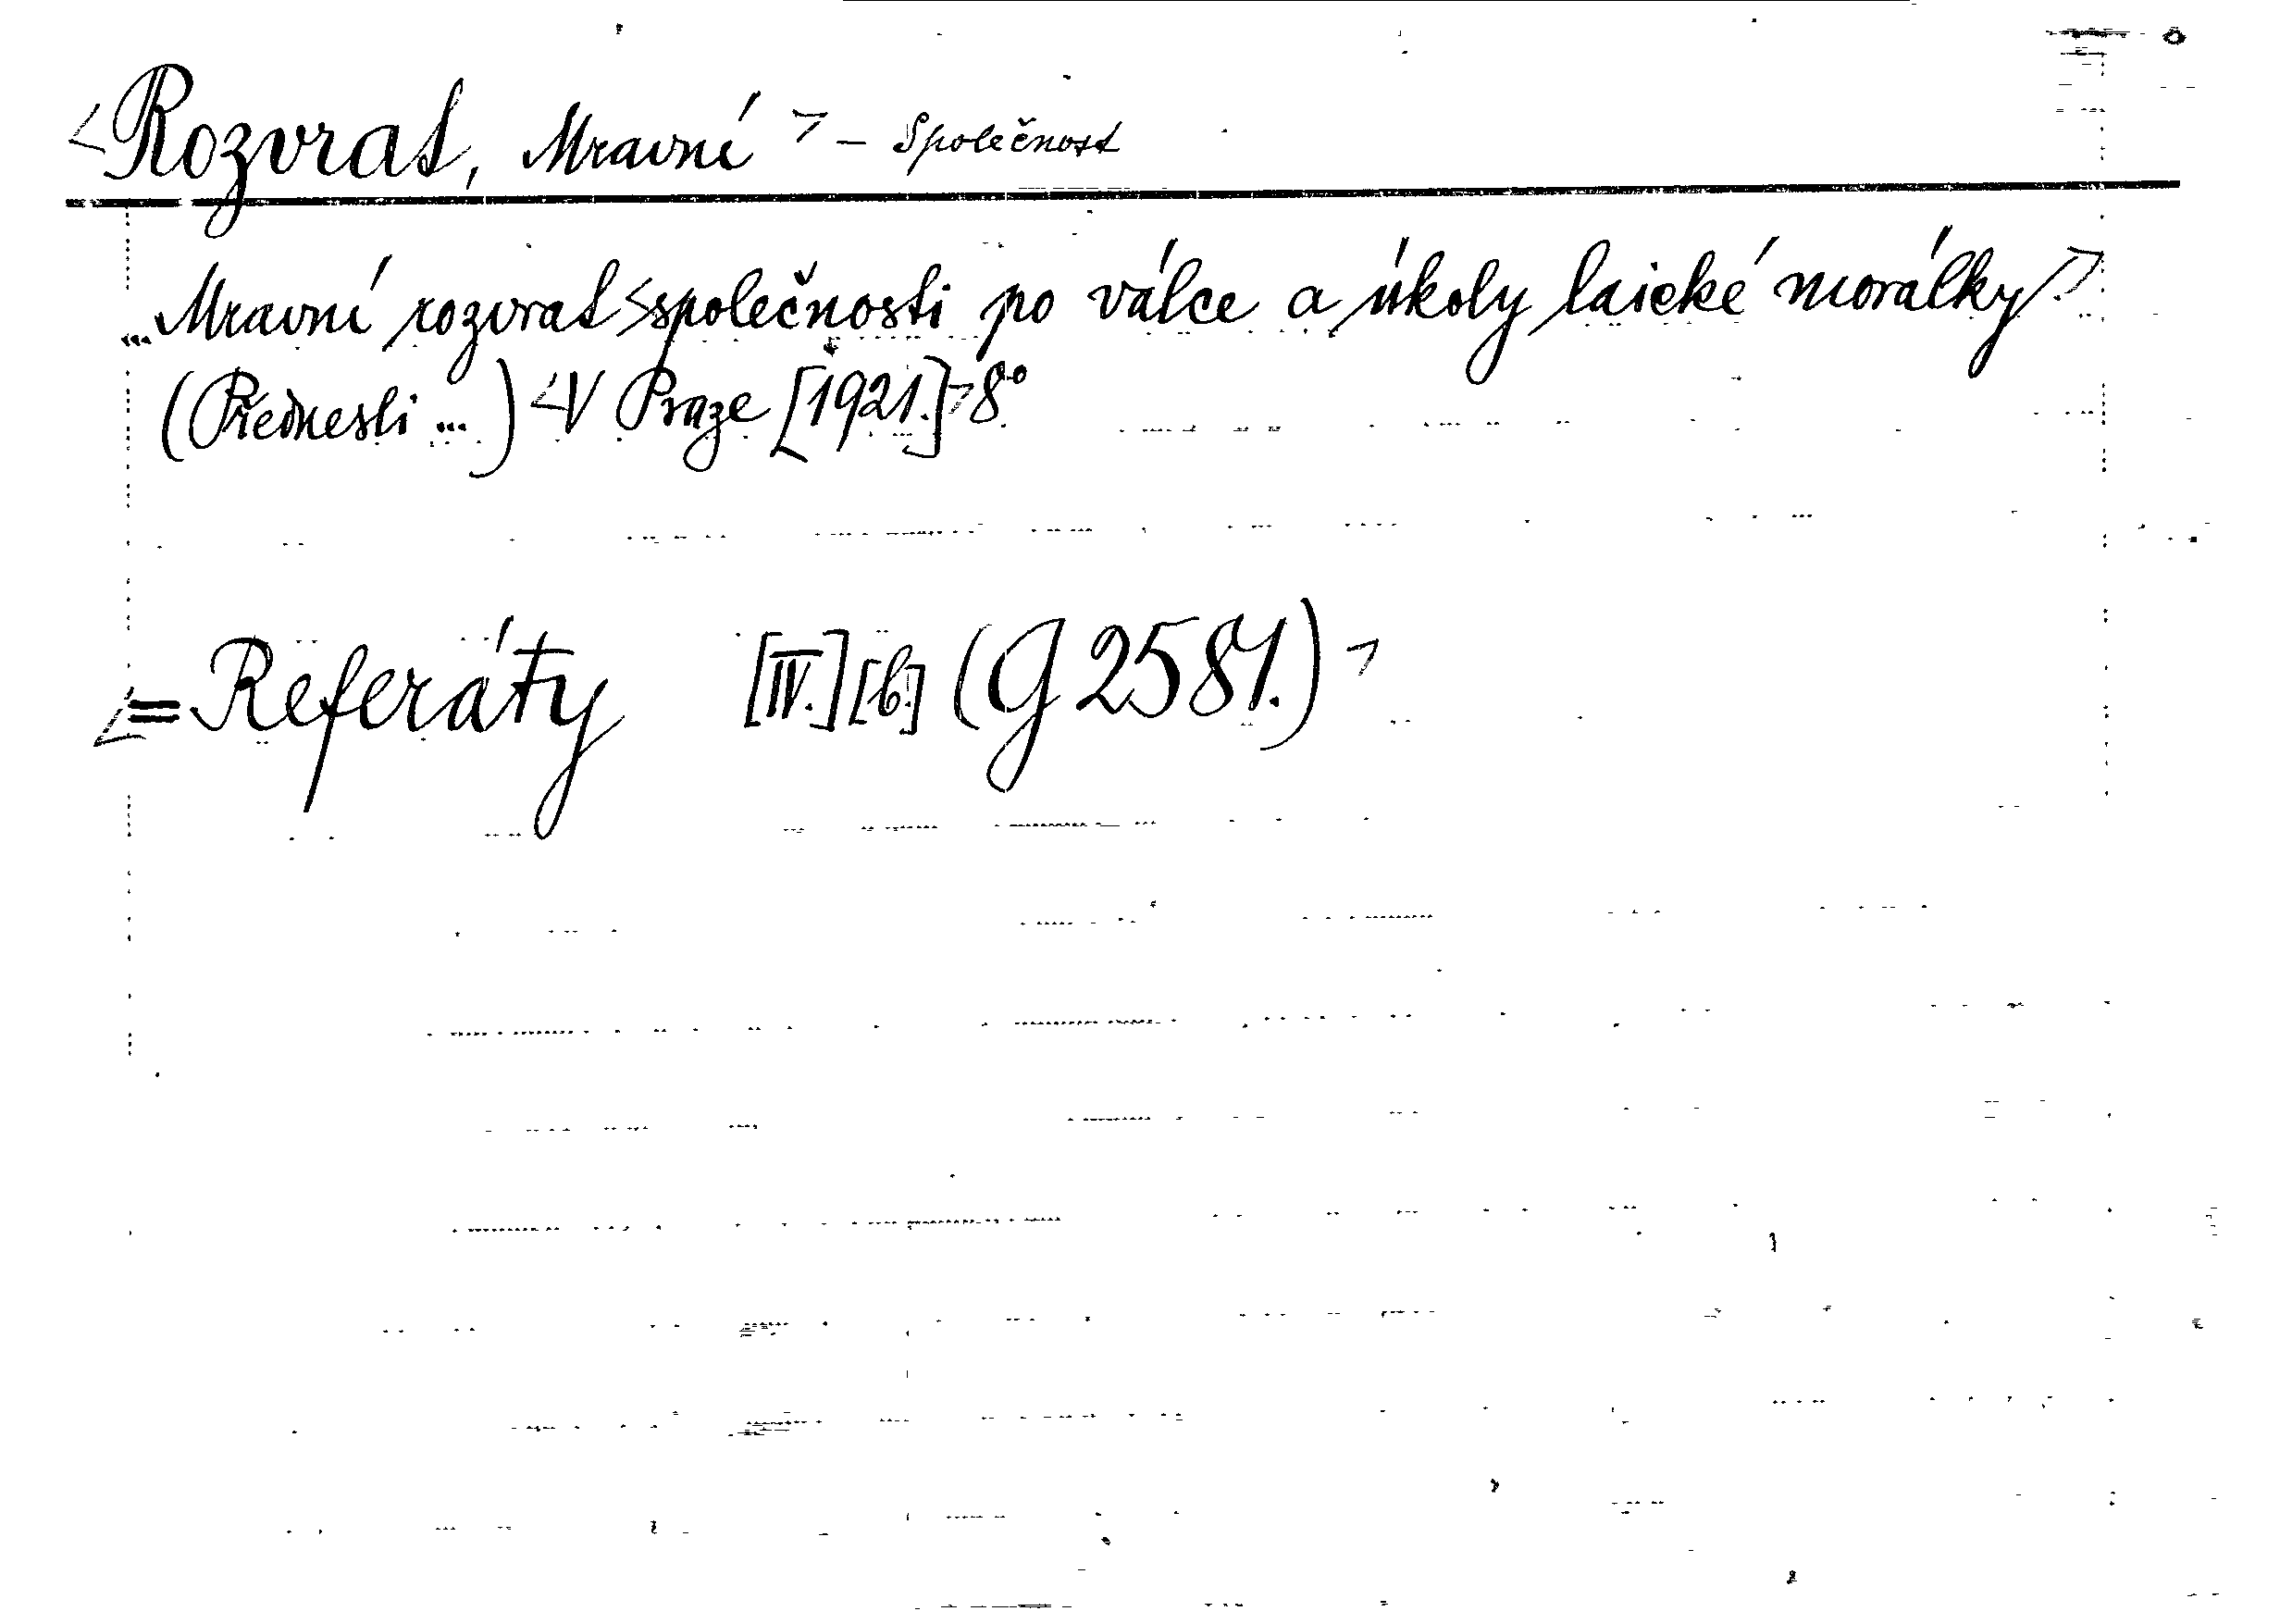 <Rozvrat, Mravní> – Společnost
...Mravní rozvrat <společnosti po válce a úkoly laické morálky.>
(Přednesli ...) <V Praze [1921.]> 8°
<= Referáty [IV.] [b.] (G 2581.)>